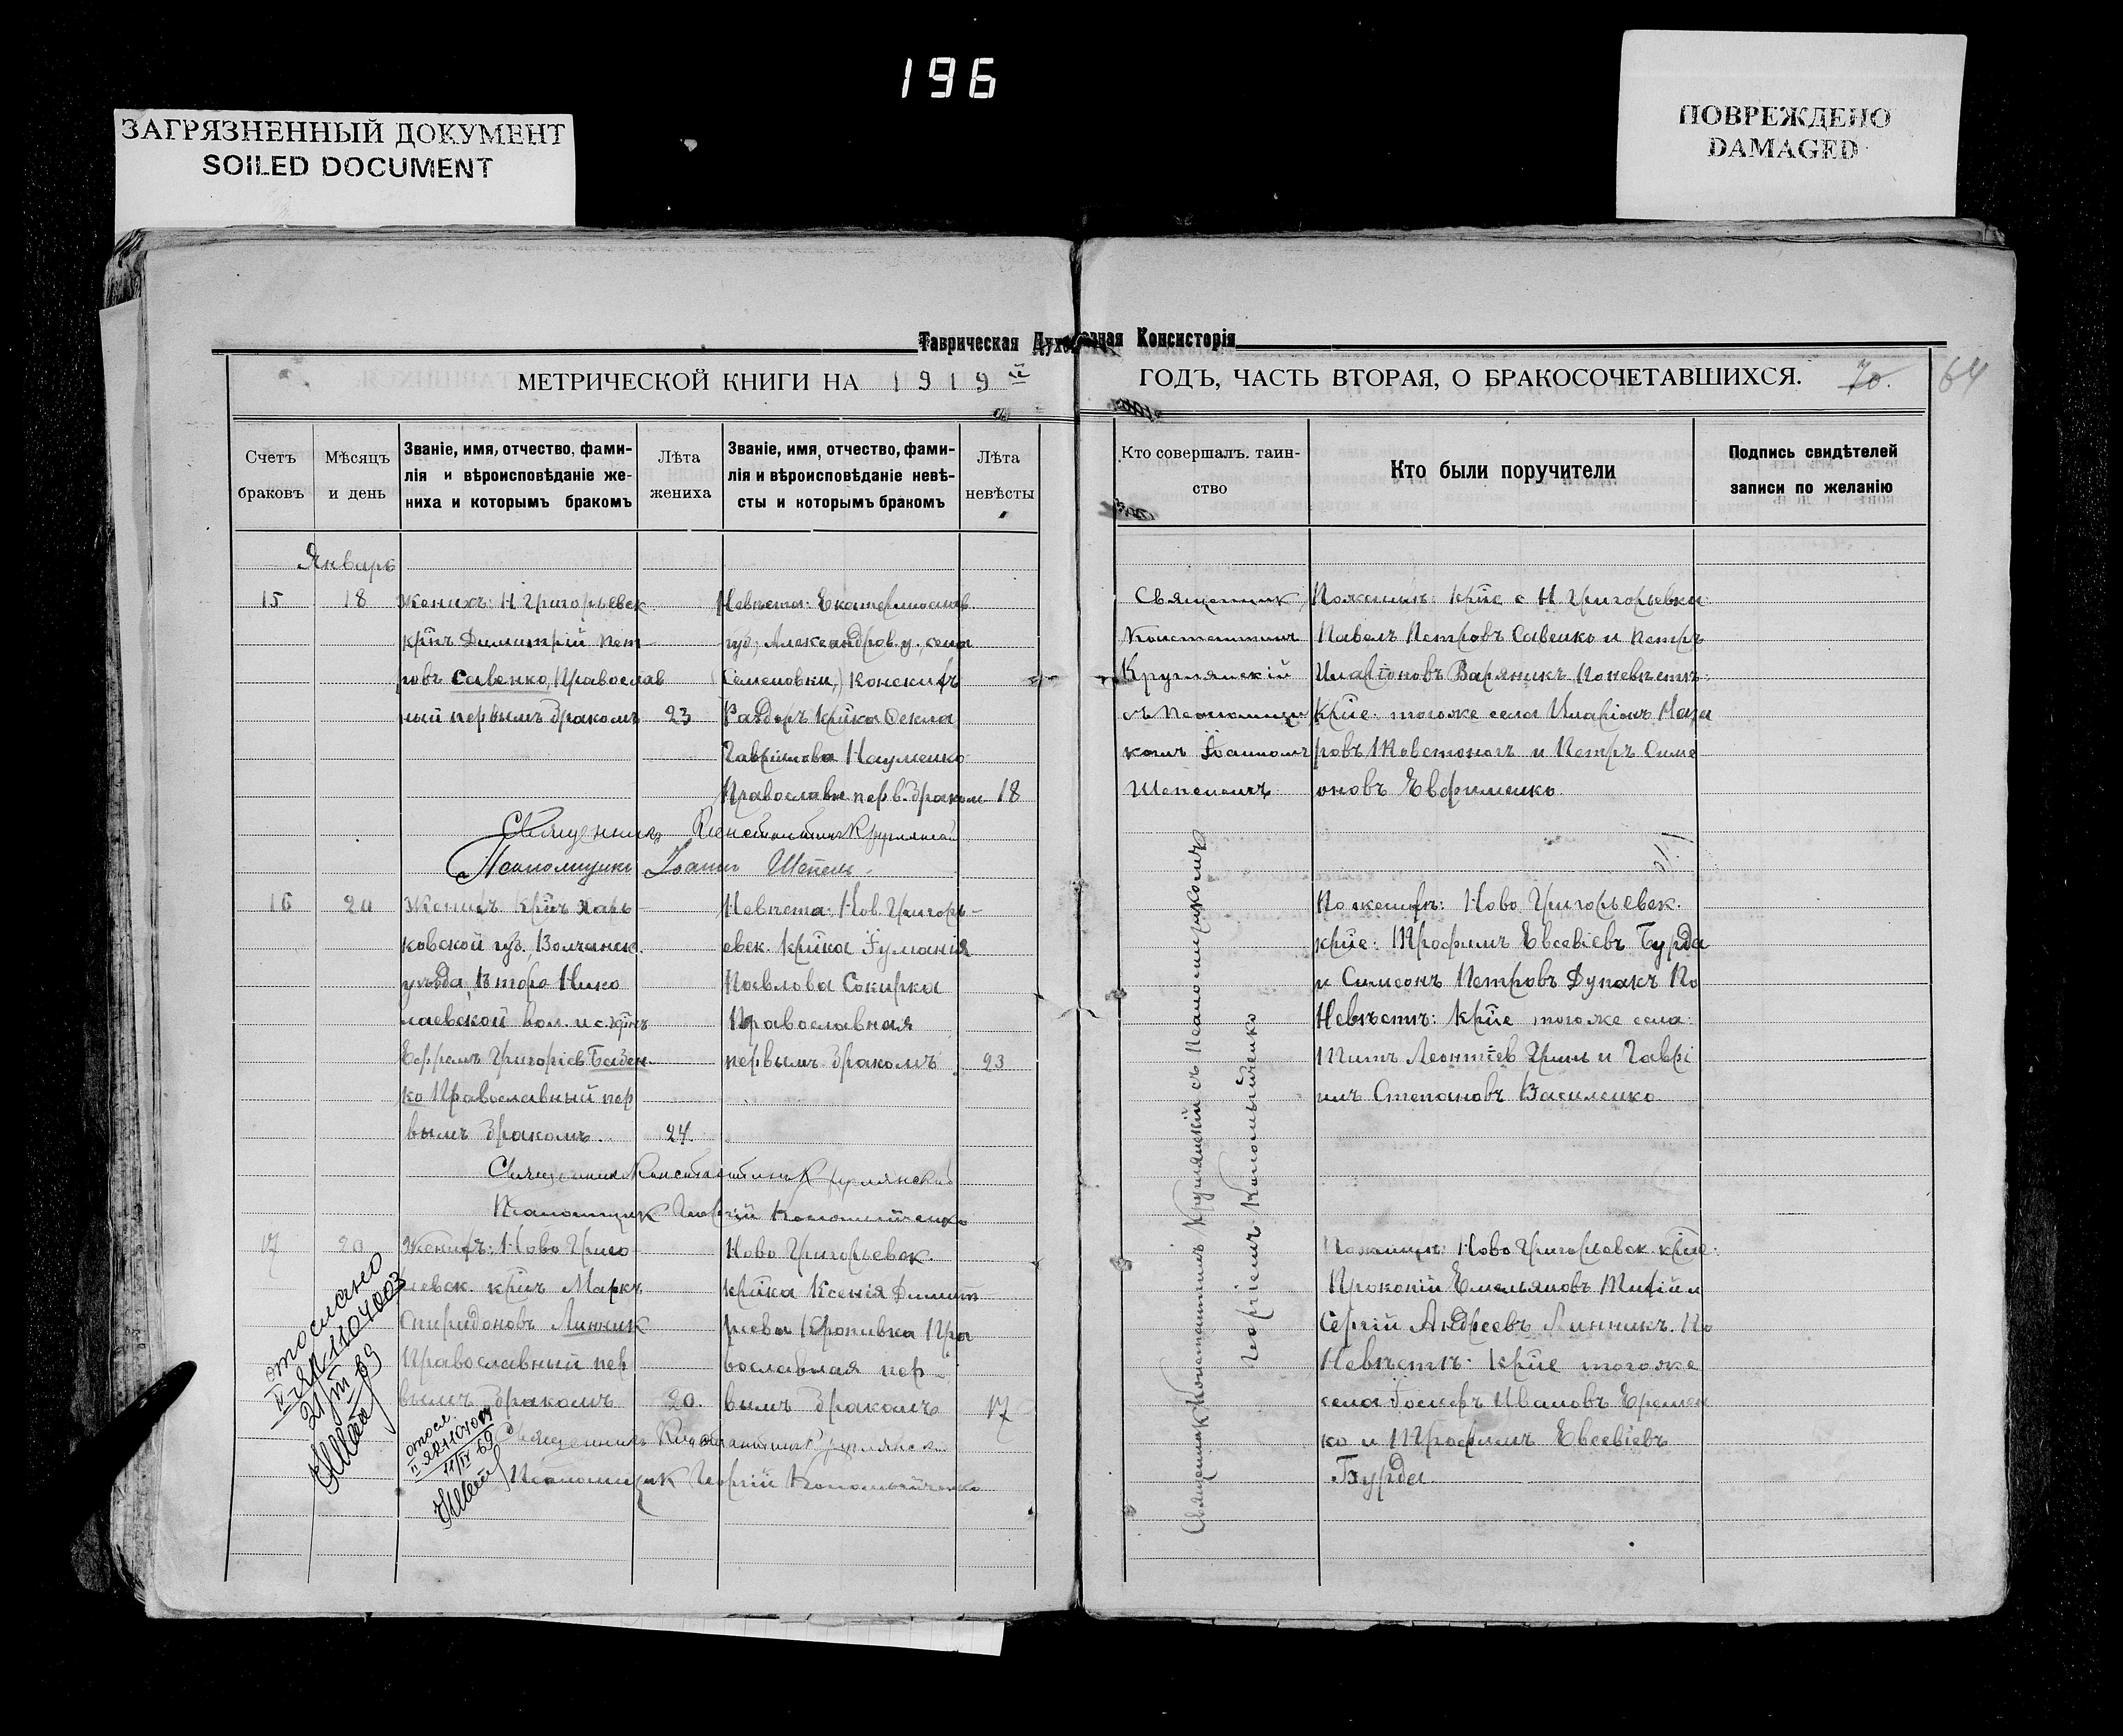 196
ЗАГРЯЗНЕННЫЙ ДОКУМЕНТ
SOILED DOCUMENT
ПОВРЕЖДЕНО
DAMAGED
Таврическая Духовная Консисторія
МЕТРИЧЕСКОЙ КНИГИ НА 1919й
ГОДЪ, ЧАСТЬ ВТОРАЯ, О БРАКОСОЧЕТАВШИХСЯ.
70. 64
Счетъ
браковъ
Мѣсяцъ
и день
Званіе, имя, отчество, фами-
лія и вѣроисповѣданіе же-
ниха и которымъ бракомъ
Лѣта
жениха
Званіе, имя, отчество, фами-
лія и вѣроисповѣданіе невѣ-
сты и которымъ бракомъ
Лѣта
невѣсты
Кто совершалъ таин-
ство
Кто были поручители
Подпись свидѣтелей
записи по желанію
Январь
15
18
Женихъ: Н Григорьевск
крнъ Димитрій Пет
ровъ Савенко, Православ
ный первымъ бракомъ
23
Невѣста: Екатеринослав
губ., Александров. у., села
(Семеновки,) Конскихъ
Раздоръ крнка Фекла
Гавріилова Науменко
Православн. перв. браком
18
Священникъ
Константинъ
Круглянскій
съ Псаломщи
комъ Іоанномъ
Шепелемъ
По женихѣ: крне с Н. Григорьевки
Павелъ Петровъ Савенко и Петръ
Иларіоновъ Варяникъ По невѣстѣ:
крне. того же села Иларіонъ Наза
ровъ Товстоногъ и Петръ Симе
оновъ Евфименко.
Священникъ Константинъ Круглянскій
Псаломщикъ Іоаннъ Шепель
16
20
Женихъ крнъ Харь-
ковской губ., Волчанск.
уѣзда, Второ Нико
лаевской вол. и с.
Ефремъ Григоріев Бабен-
ко Православный пер
вымъ бракомъ.
24.
Невѣста: Нов. Григорь-
евск. крнка Іуманія
Павлова Сокирка
Православная
первымъ бракомъ
23
По женихѣ: Ново Григорьевск.
крне: Трофимъ Евсевіевъ Бурда
и Симеонъ Петровъ Дупакъ По
Невѣстѣ: крне того же села:
Титъ Леонтіев Гриш и Гаврі
илъ Степановъ Василенко
Священникъ Константинъ Круглянскій
Псаломщик Георгій Коломыйченко
Священник Константинъ Круглянскій съ Псаломщикомъ
Георгіемъ Коломыйченко
17
20
Женихъ: Ново Григо
рьевск. крнъ Маркъ
Спиридоновъ Линник
Православный пер
вымъ бракомъ
20.
Ново Григорьевск.
крнка Ксенія Димит
ріева Кропивка Пра
вославная пер-
вымъ бракомъ
17
По женихѣ: Ново Григорьевск крне:
Прокопій Емельяновъ Тихій и
Сергій Андреевъ Линникъ. По
Невѣстѣ: крне того же
села Іосифъ Ивановъ Еремен
ко и Трофимъ Евсевіевъ
Бурда
Священникъ Константинъ Круглянск
Псаломщик Георгій Коломыйченко
отослано
II-ЯП-1104003
21/III 69
отосл.
11/IV 69